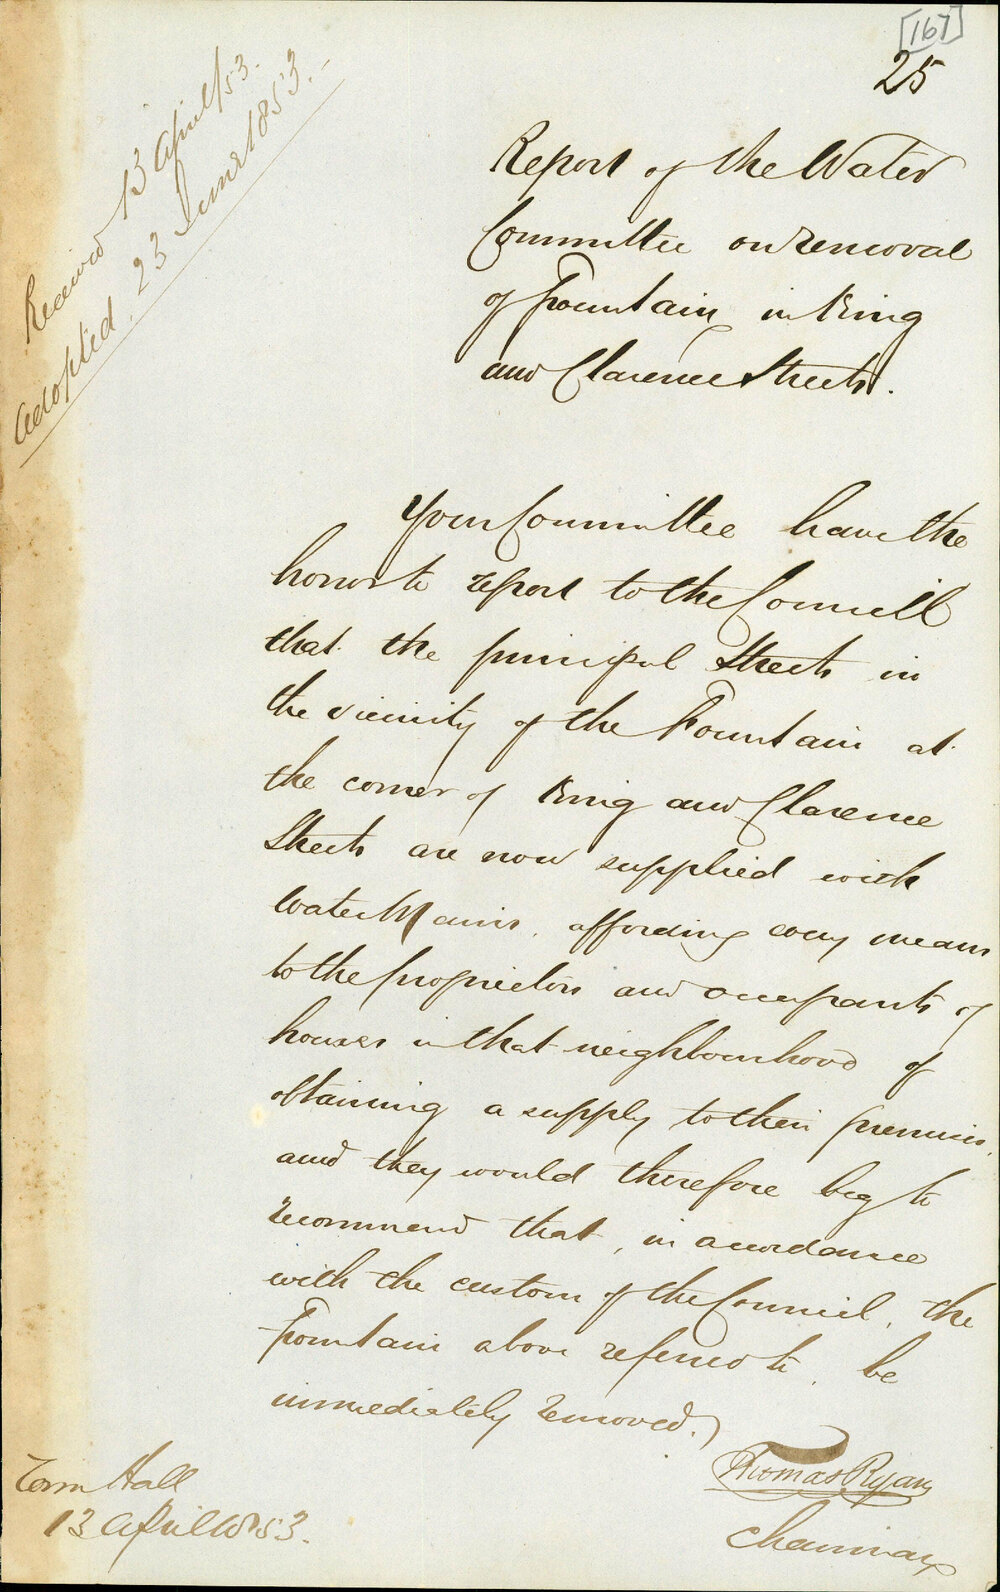 [167]
25
Received 13 April/53.
Adopted 23 June 1853.-
Report of the Water
Committee on removal
of Fountain in King
and Clarence Streets.
Your Committee have the
honor to report to the Council
that the principal Streets in
the vicinity of the Fountain at
the corner of King and Clarence
Streets are now supplied with
Water Mains, affording every means
to the proprietors and occupants of
houses in that neighbourhood of
obtaining a supply to their premises,
and they would therefore beg to
recommend that, in accordance
with the custom of the Council, the
Fountain above referred to, be
immediately removed.
Thomas Ryan
Chairman
Town Hall
13 April 1853.